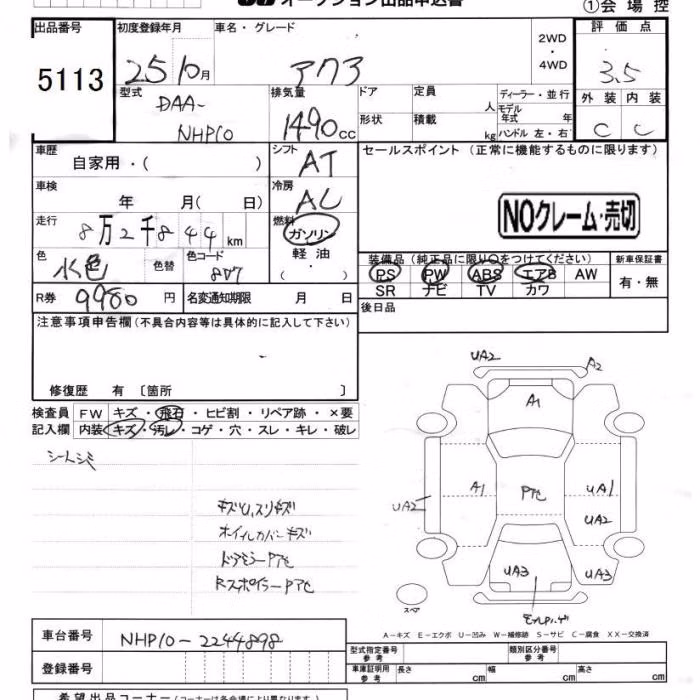 オークション出品申込書
①会場控
出品番号 初度登録年月 車名・グレード 2WD・4WD 評価点
5113 25 10月 アクア 3.5
型式 DAA-NHP10 排気量 1490cc
ドア 定員 人 ディーラー・並行
形状 積載 kg モデル年式 年
ハンドル 左・右
外装 内装
C C
車歴 自家用・( ) シフト AT
セールスポイント (正常に機能するものに限ります)
車検 年 月( 日) 冷房 AC
NOクレーム・売切
走行 8万2千844km 燃料 ガソリン・軽油・( )
色 水色 色替 色コード
装備品(純正品に限り○をつけてください) 新車保証書
PS PW ABS エアB AW 有・無
SR ナビ TV カワ
R券 9980円 名変通知期限 月 日
後日品
注意事項申告欄(不具合内容等は具体的に記入して下さい)
修復歴 有 〔箇所 〕
検査員 FW キズ・飛石・ヒビ割・リペア跡・×要
記入欄 内装 キズ・汚レ・コゲ・穴・スレ・キレ・破レ
シートシミ
ホイールカバーキズ
ドアミラーPアセ
RスポイラーPアセ
UA2 A2
A1
UA2 A1 Pアセ UA1
UA2
UA3 UA3
スペア
A-キズ E-エクボ U-凹み W-補修跡 S-サビ C-腐食 XX-交換済
車台番号 NHP10-2244898
型式指定番号 参考 類別区分番号 参考
登録番号
車庫証明用 参考 長さ cm 幅 cm 高さ cm
希望出品コーナー(コーナーは各会場により異なります)